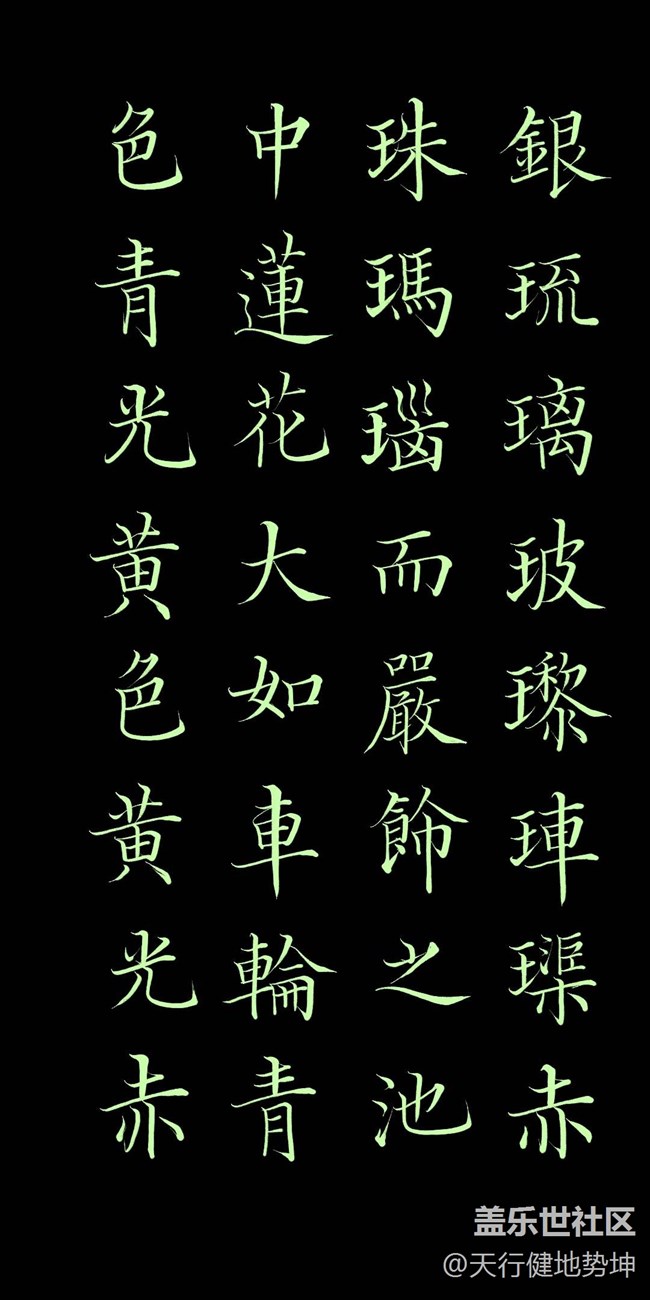 銀琉璃玻瓈琿璖赤
珠瑪瑙而嚴飾之池
中蓮花大如車輪青
色青光黃色黃光赤
盖乐世社区
@天行健地势坤